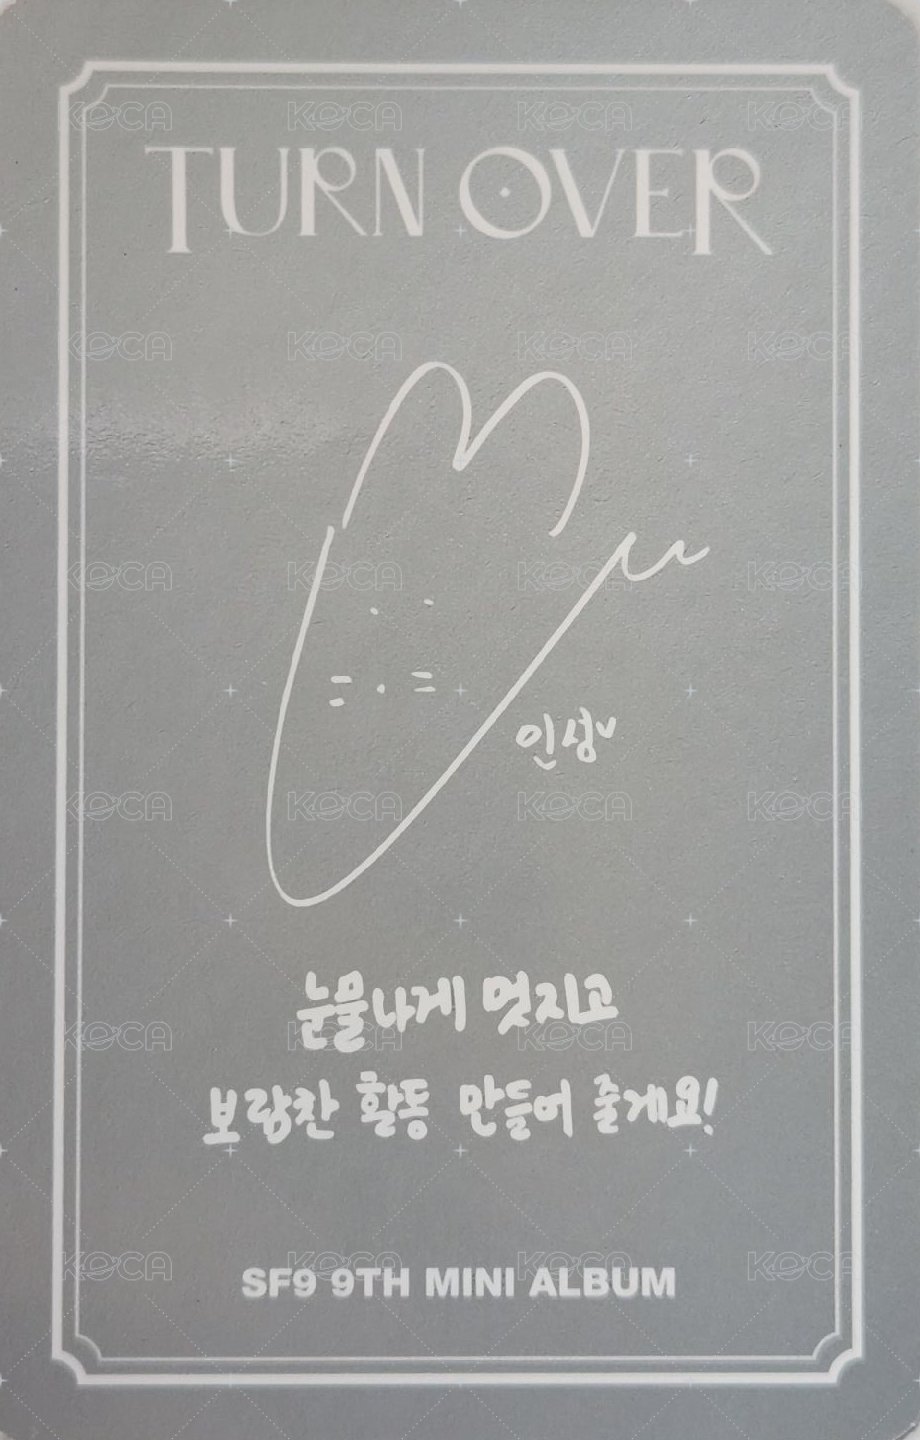 TURN OVER
인성
눈물나게 멋지고
보람찬 활동 만들어 줄게요!
SF9 9TH MINI ALBUM
KOCA